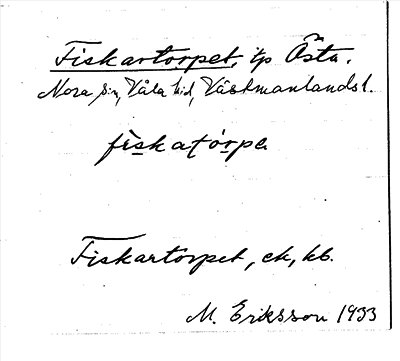 Fiskartorpet, tp Östa.
Nora sn, Våla hd, Västmanlands l.
fìskatórpe
Fiskartorpet, ek, kb.
M. Eriksson 1933